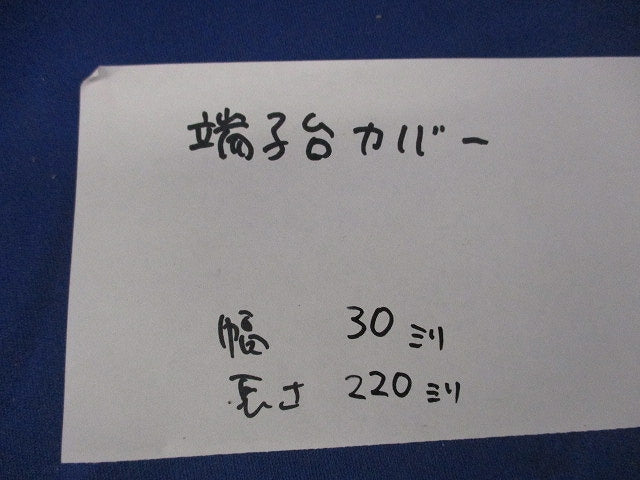 端子台カバー
幅 30ミリ
長さ 220ミリ